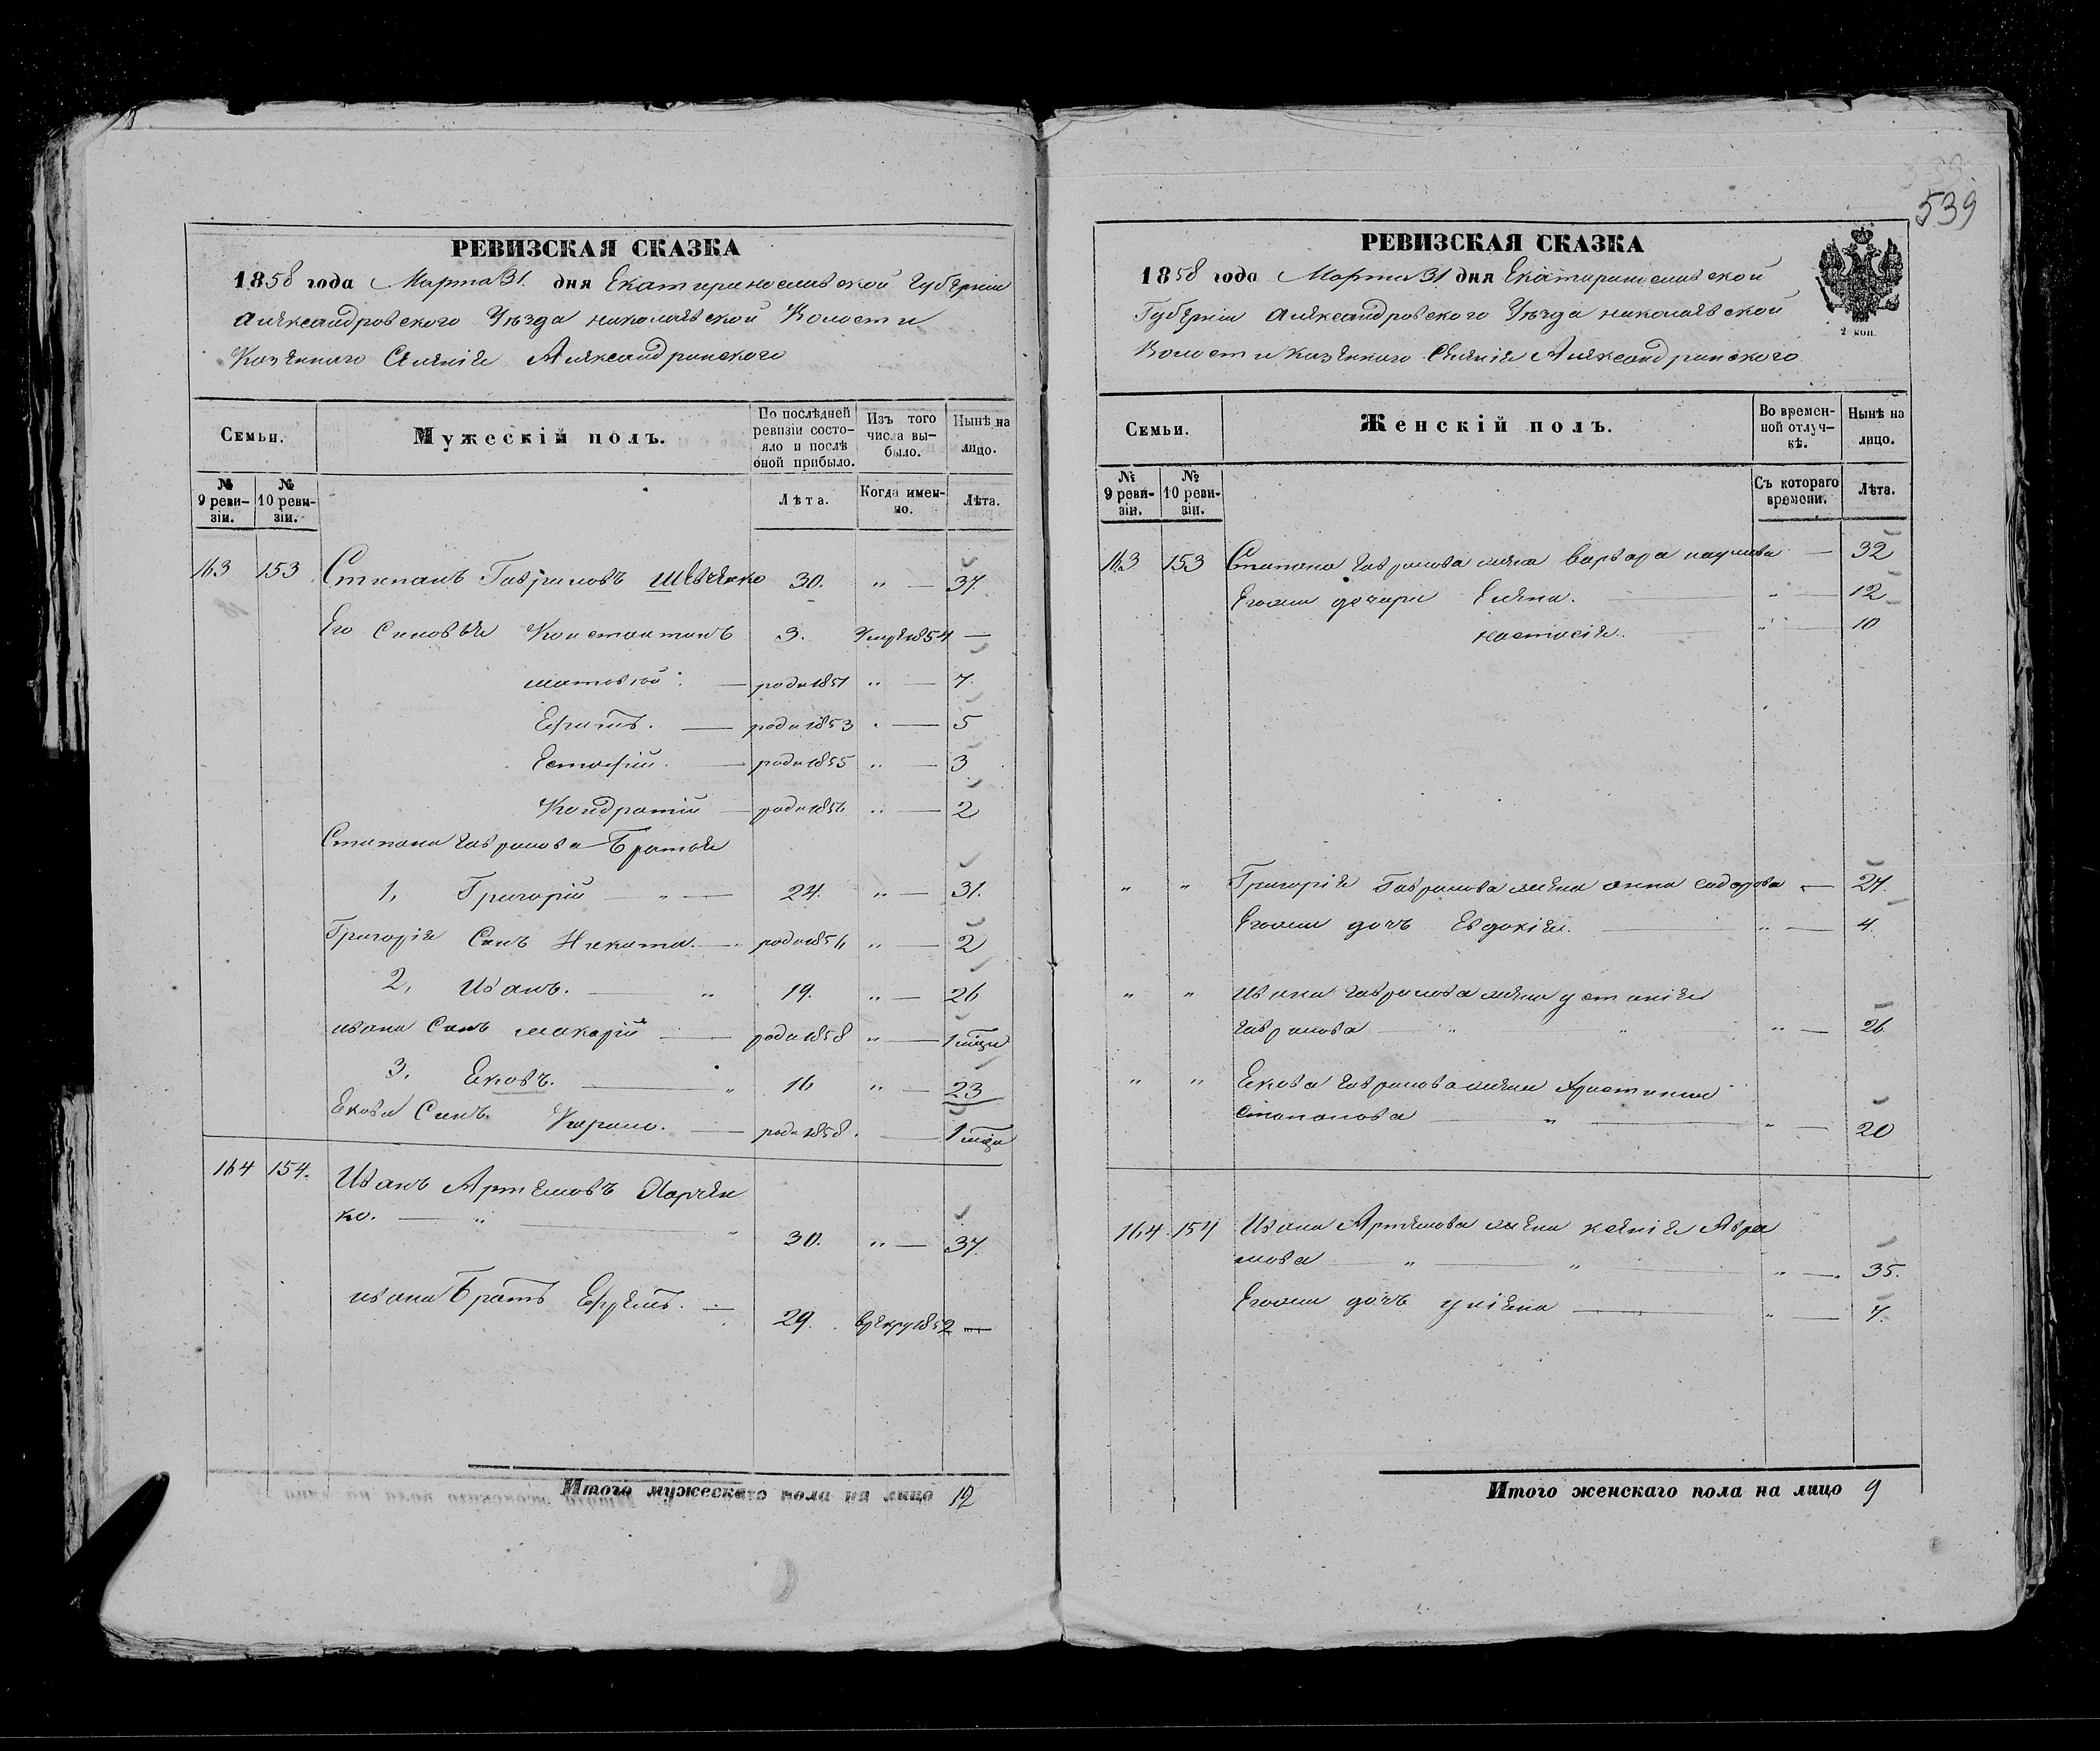 РЕВИЗСКАЯ СКАЗКА
1858 года Марта 31 дня Екатеринославской Губернии
Александровского Уѣзда николаевской Волости
Казенного Селенія Александринского
Семьи.
Мужескій полъ.
По послѣдней ревизіи состояло и послѣ оной прибыло.
Изъ того числа выбыло.
Нынѣ на лицо.
№ 9 ревизіи.
№ 10 ревизіи.
Лѣта.
Когда именно.
Лѣта.
163 153 Степанъ Гавриловъ Шевченко 30. " — 37.
Его Сыновья Константинъ 3. Умре 1854 —
матвѣй. — роди 1851 " — 7.
Ефимъ. — роди 1853 " — 5
Естафій. — роди 1855 " — 3
Кондратій — роди 1856 " — 2
Степана Гаврилова Братья
1, Григорій — " — 24. " — 31.
Григорія Сынъ Никита. — " роди 1856 " — 2
2, Иванъ. — " 19. " — 26
ивана Сынъ макарій — роди 1858 " — 1 мѣця
3, Εковъ. — " 16 " — 23
Екова Сынъ. Кирило. — роди 1858. — 1 мѣця
164 154. Иванъ Артемовъ Харчен
ко. — " — " 30. " — 37.
ивана Братъ Ефремъ. — 29. в рекру 1852 —
Итого мужескаго пола на лицо 12
539
РЕВИЗСКАЯ СКАЗКА
1858 года Марта 31 дня Екатеринославской
Губернии Александровского Уѣзда николаевской
Волости Казенного Селенія Александринского
2 коп.
Семьи.
Женскій полъ.
Во временной отлучкѣ.
Нынѣ на лицо.
№ 9 ревизіи.
№ 10 ревизіи.
Съ котораго времени.
Лѣта.
163 153 Степана Гаврилова жена варвара наумова — 32
Егоже дочери Елена. — " — 12
настасія. — " — 10
" " Григорія Гаврилова жена анна сидорова — 27.
Егоже дочь Евдокія. — " — 4.
" " Ивана Гаврилова жена устинія
гаврилова — " " " — 26.
" " Екова Гаврилова жена Христинія
Степанова — " — " — 20
164 154 Ивана Артемова жена ксенія Авра
мова — " — " — " — " 35.
Егоже дочь уліяна — " — 7.
Итого женскаго пола на лицо 9